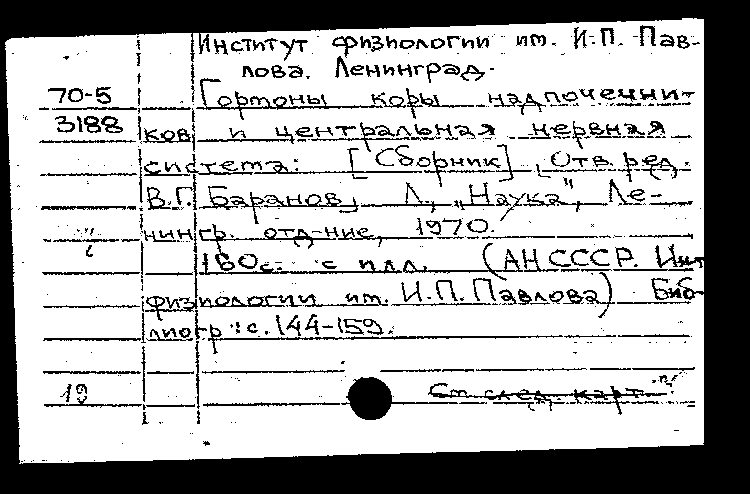 Институт физиологии им. И.П. Пав-
лова. Ленинград.
70-5 Гормоны коры надпочечни-
3188 ков и центральная нервная
система: [Сборник]. Отв. ред.
В.Г. Баранов, Л., "Наука", Ле-
нингр. отд-ние, 1970.
160с. с илл. (АН СССР. Инт
физиологии им. И.П. Павлова) Биб-
лиогр: с. 144-159.
19 См след. карт